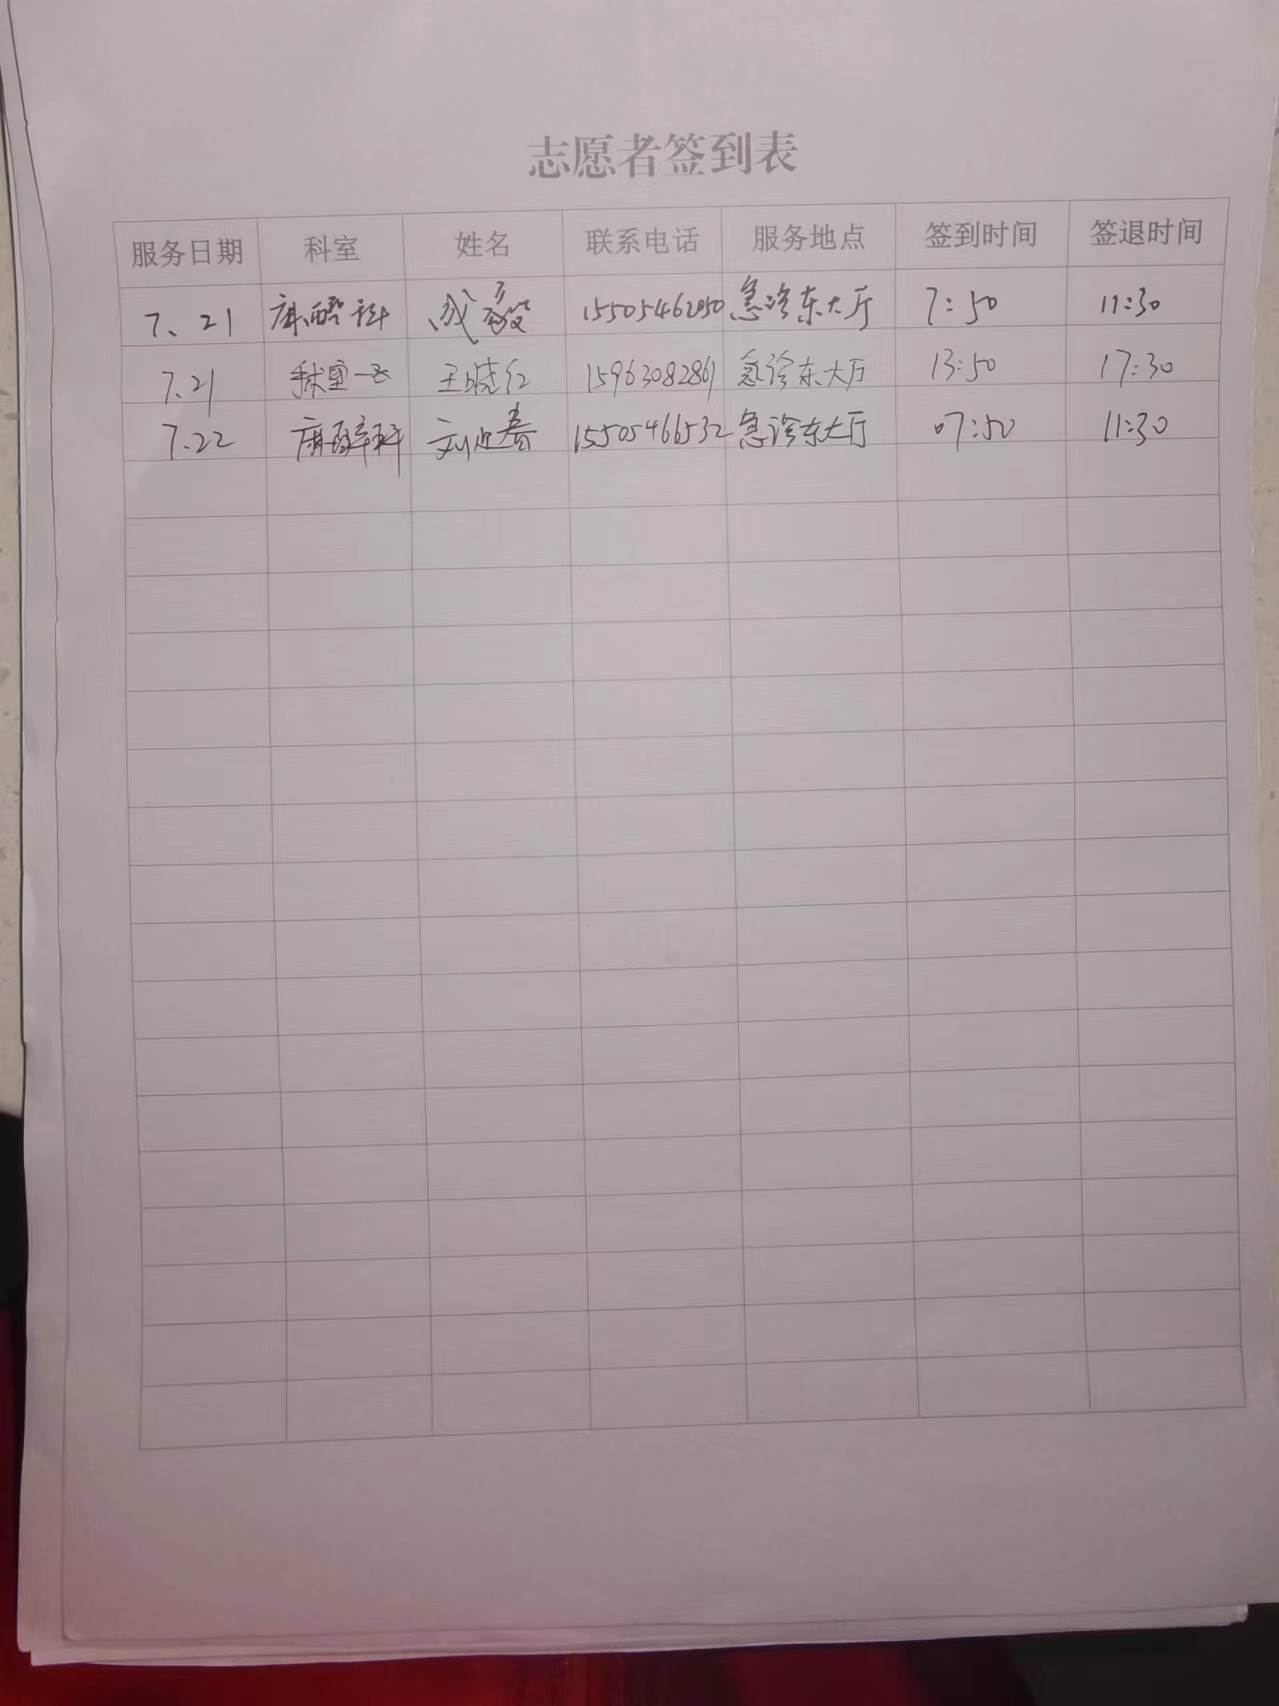 志愿者签到表
服务日期 科室 姓名 联系电话 服务地点 签到时间 签退时间
7.21 麻醉科 成毅 15505462050 急诊东大厅 7:50 11:30
7.21 手术室一区 王晓红 15963082861 急诊东大厅 13:50 17:30
7.22 麻醉科 刘迎春 15505466532 急诊东大厅 07:50 11:30